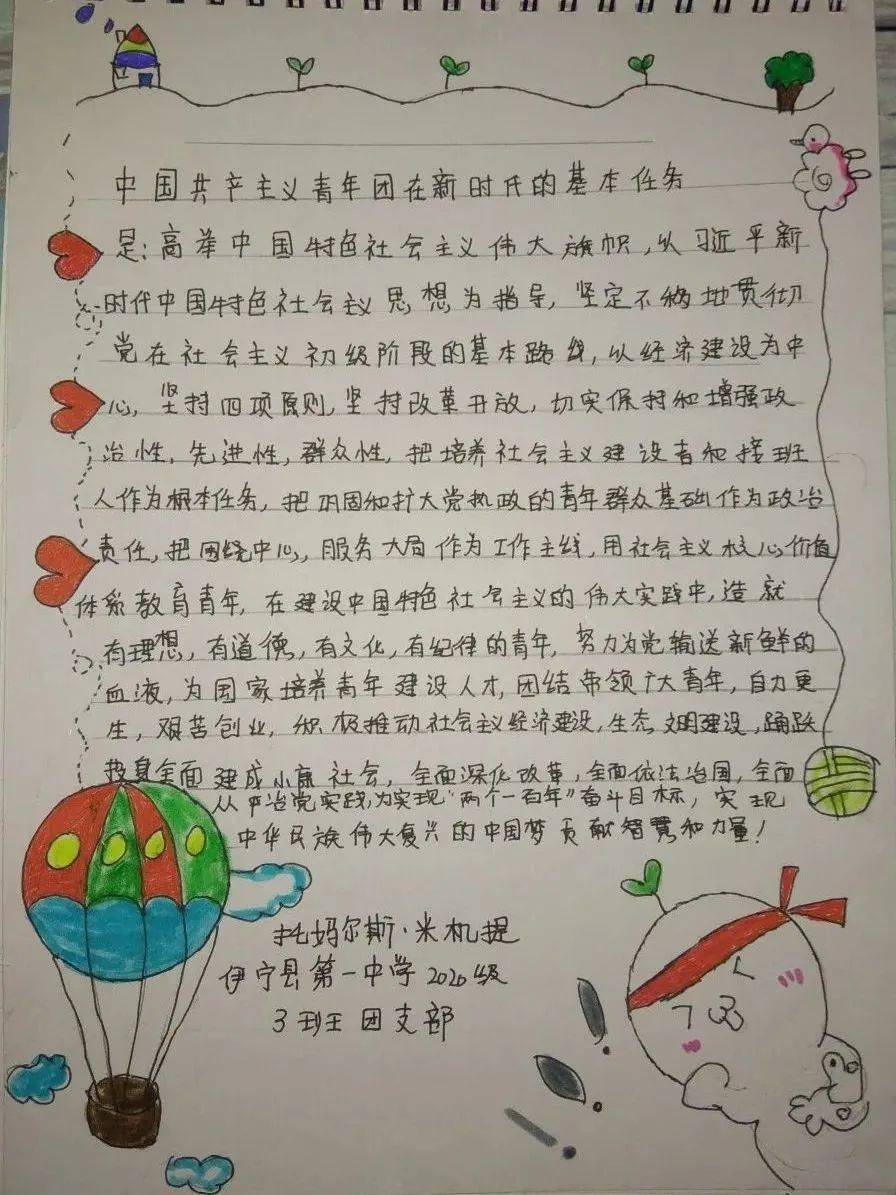 中国共产主义青年团在新时代的基本任务
是:高举中国特色社会主义伟大旗帜,以习近平新
时代中国特色社会主义思想为指导,坚定不移地贯彻
党在社会主义初级阶段的基本路线,以经济建设为中
心,坚持四项原则,坚持改革开放,切实保持和增强政
治性,先进性,群众性,把培养社会主义建设者和接班
人作为根本任务,把巩固和扩大党执政的青年群众基础作为政治
责任,把围绕中心,服务大局作为工作主线,用社会主义核心价值
体系教育青年,在建设中国特色社会主义的伟大实践中,造就
有理想,有道德,有文化,有纪律的青年,努力为党输送新鲜的
血液,为国家培养青年建设人才,团结带领广大青年,自力更
生,艰苦创业,积极推动社会主义经济建设,生态文明建设,踊跃
投身全面建成小康社会,全面深化改革,全面依法治国,全面
从严治党实践,为实现"两个一百年"奋斗目标,实现
中华民族伟大复兴的中国梦贡献智慧和力量!
托妈尔斯·米机提
伊宁县第一中学2020级
3班团支部